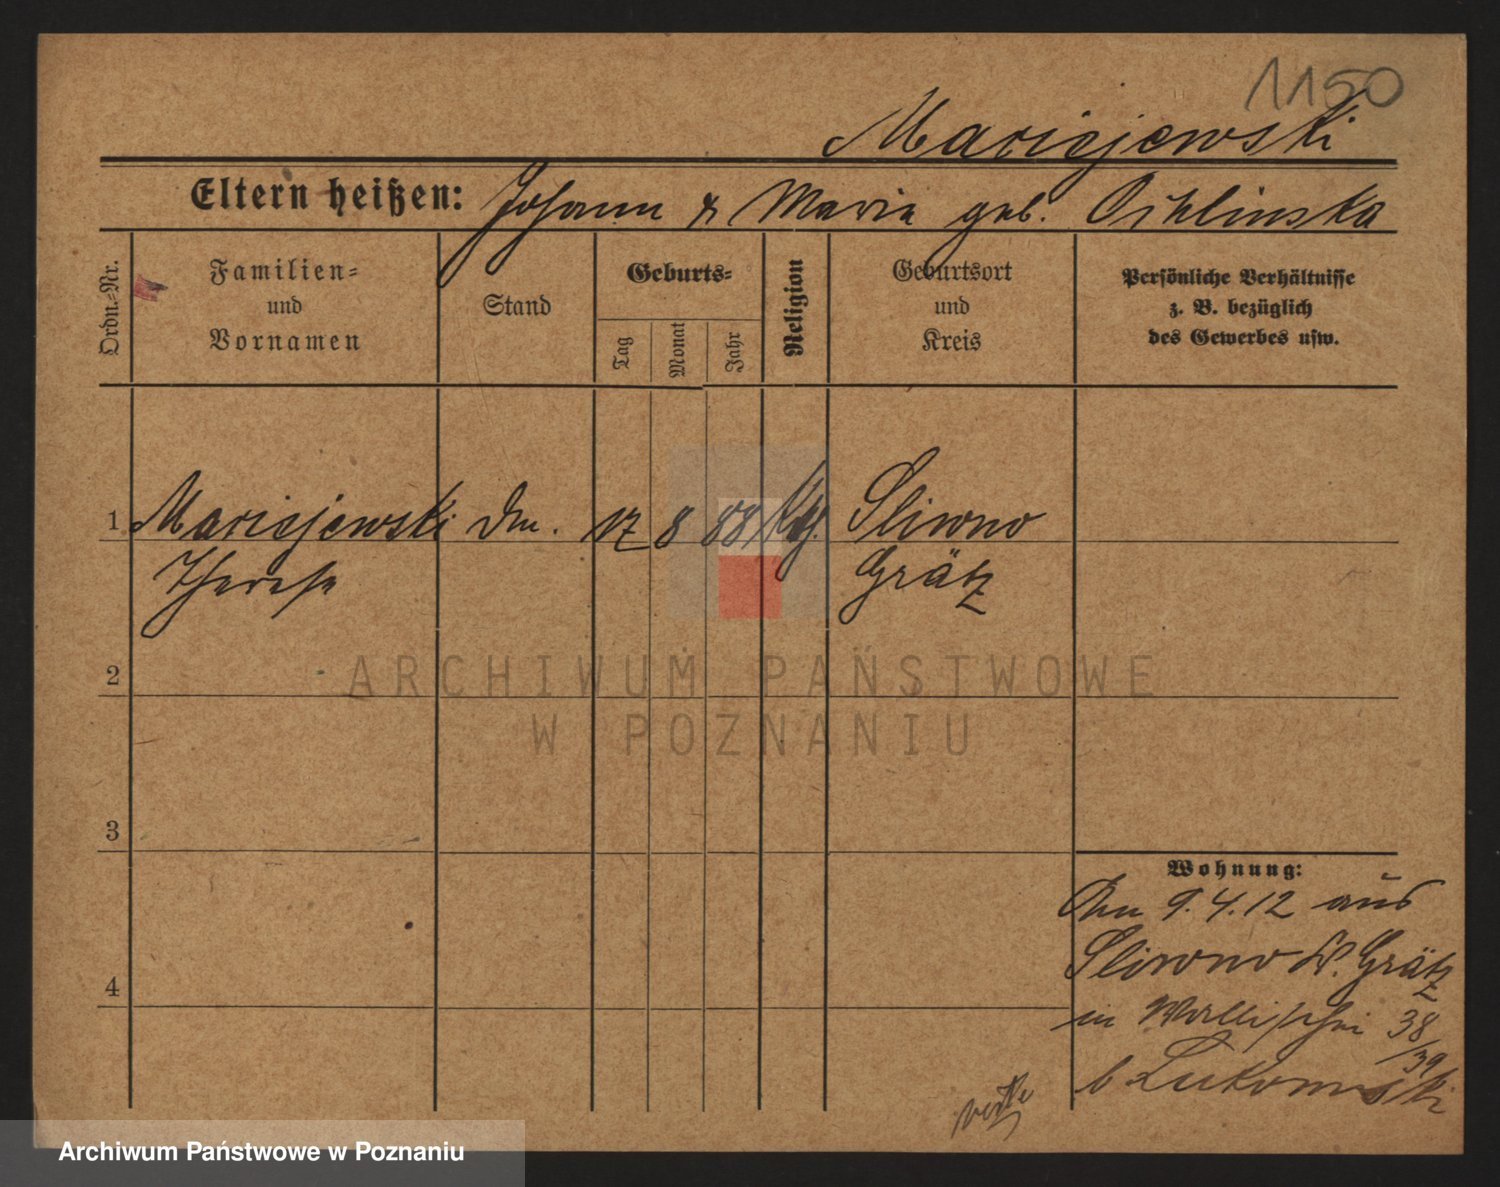 1150
Maciejewski
Eltern heißen: Johann & Marie geb. Cichlinska
Ordn.-Nr.
Familien-
und
Vornamen
Stand
Geburts-
Tag
Monat
Jahr
Religion
Geburtsort
und
Kreis
Persönliche Verhältnisse
z. B. bezüglich
des Gewerbes usw.
1 Maciejewski Dm. 17 8 88 Kth. Sliwno
Therese Grätz
2
ARCHIWUM PAŃSTWOWE
W POZNANIU
3
Wohnung:
Am 9.4.12 aus
Sliwno Kr. Grätz
4
in Wallischei 38/39
b Lukomski
Archiwum Państwowe w Poznaniu